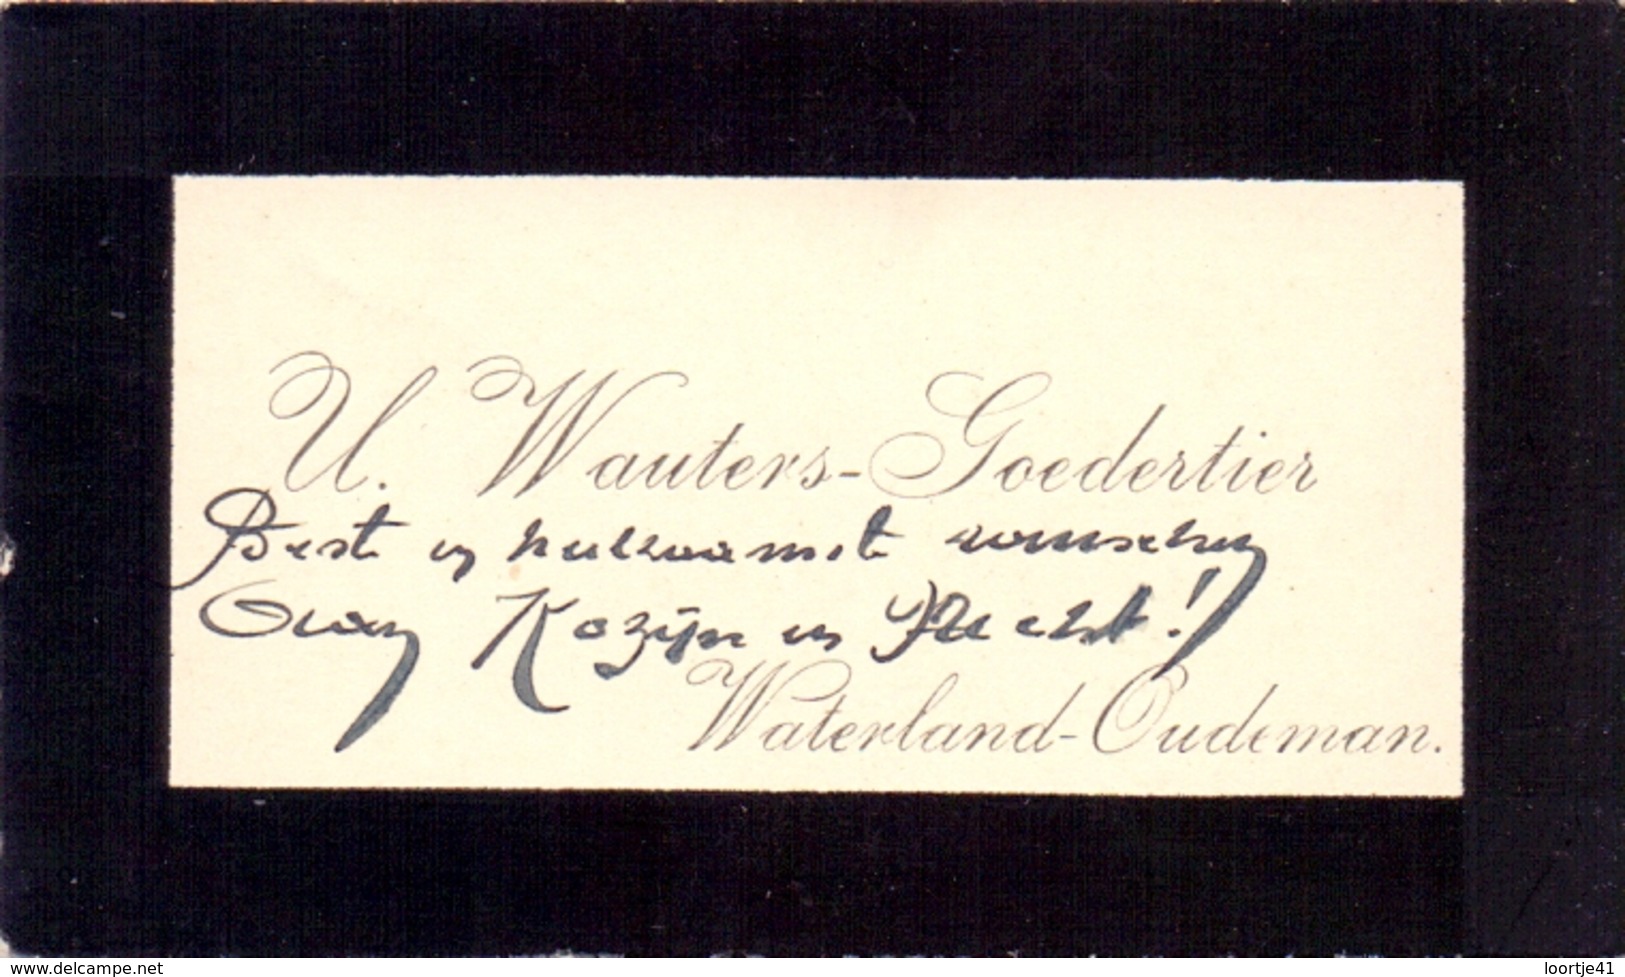 U. Wauters-Goedertier
Beste en heilzaamste wenschen
Aan Kozijn en
Waterland-Oudeman.
www.delcampe.net
loortje41